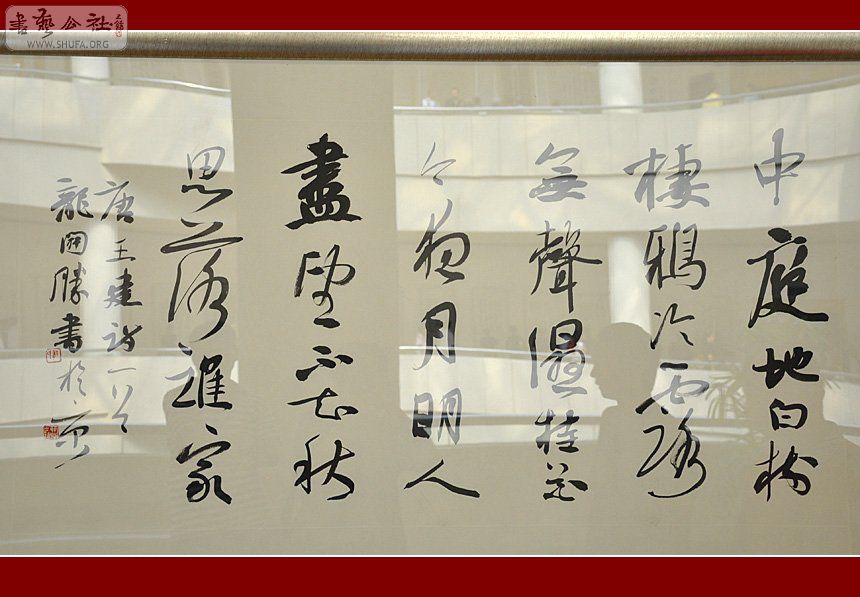 書藝公社
WWW.SHUFA.ORG
中庭地白樹
棲鴉冷露
無聲濕桂花
今夜月明人
盡望不知秋
思落誰家
唐王建詩一首
龍開勝書於京